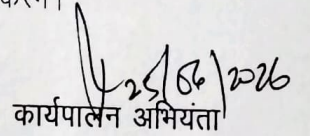 25/06/2026
कार्यपालन अभियंता